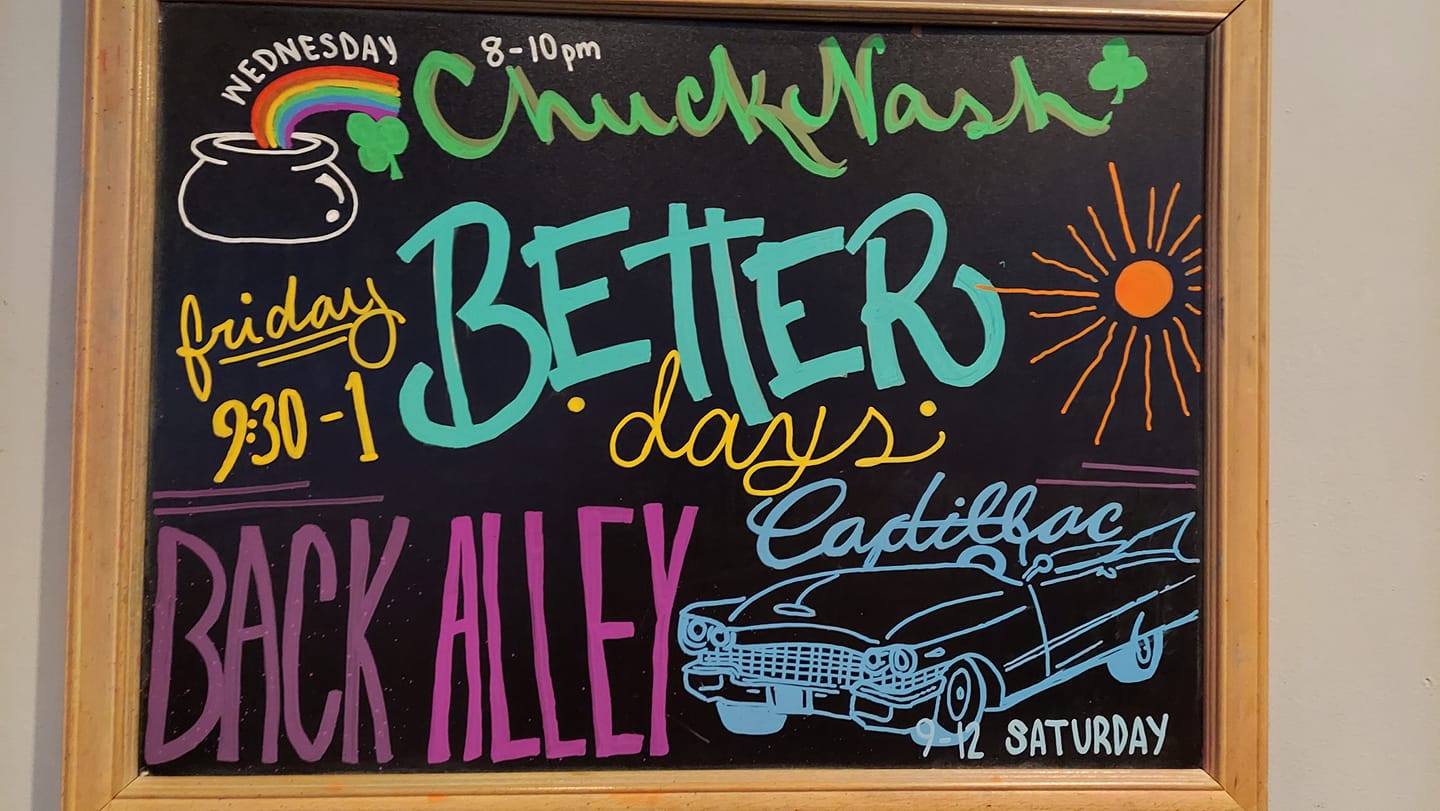 WEDNESDAY 8-10pm
Chuck Nash
BETTER
friday
9:30-1
days
Cadillac
BACK ALLEY
9-12 SATURDAY